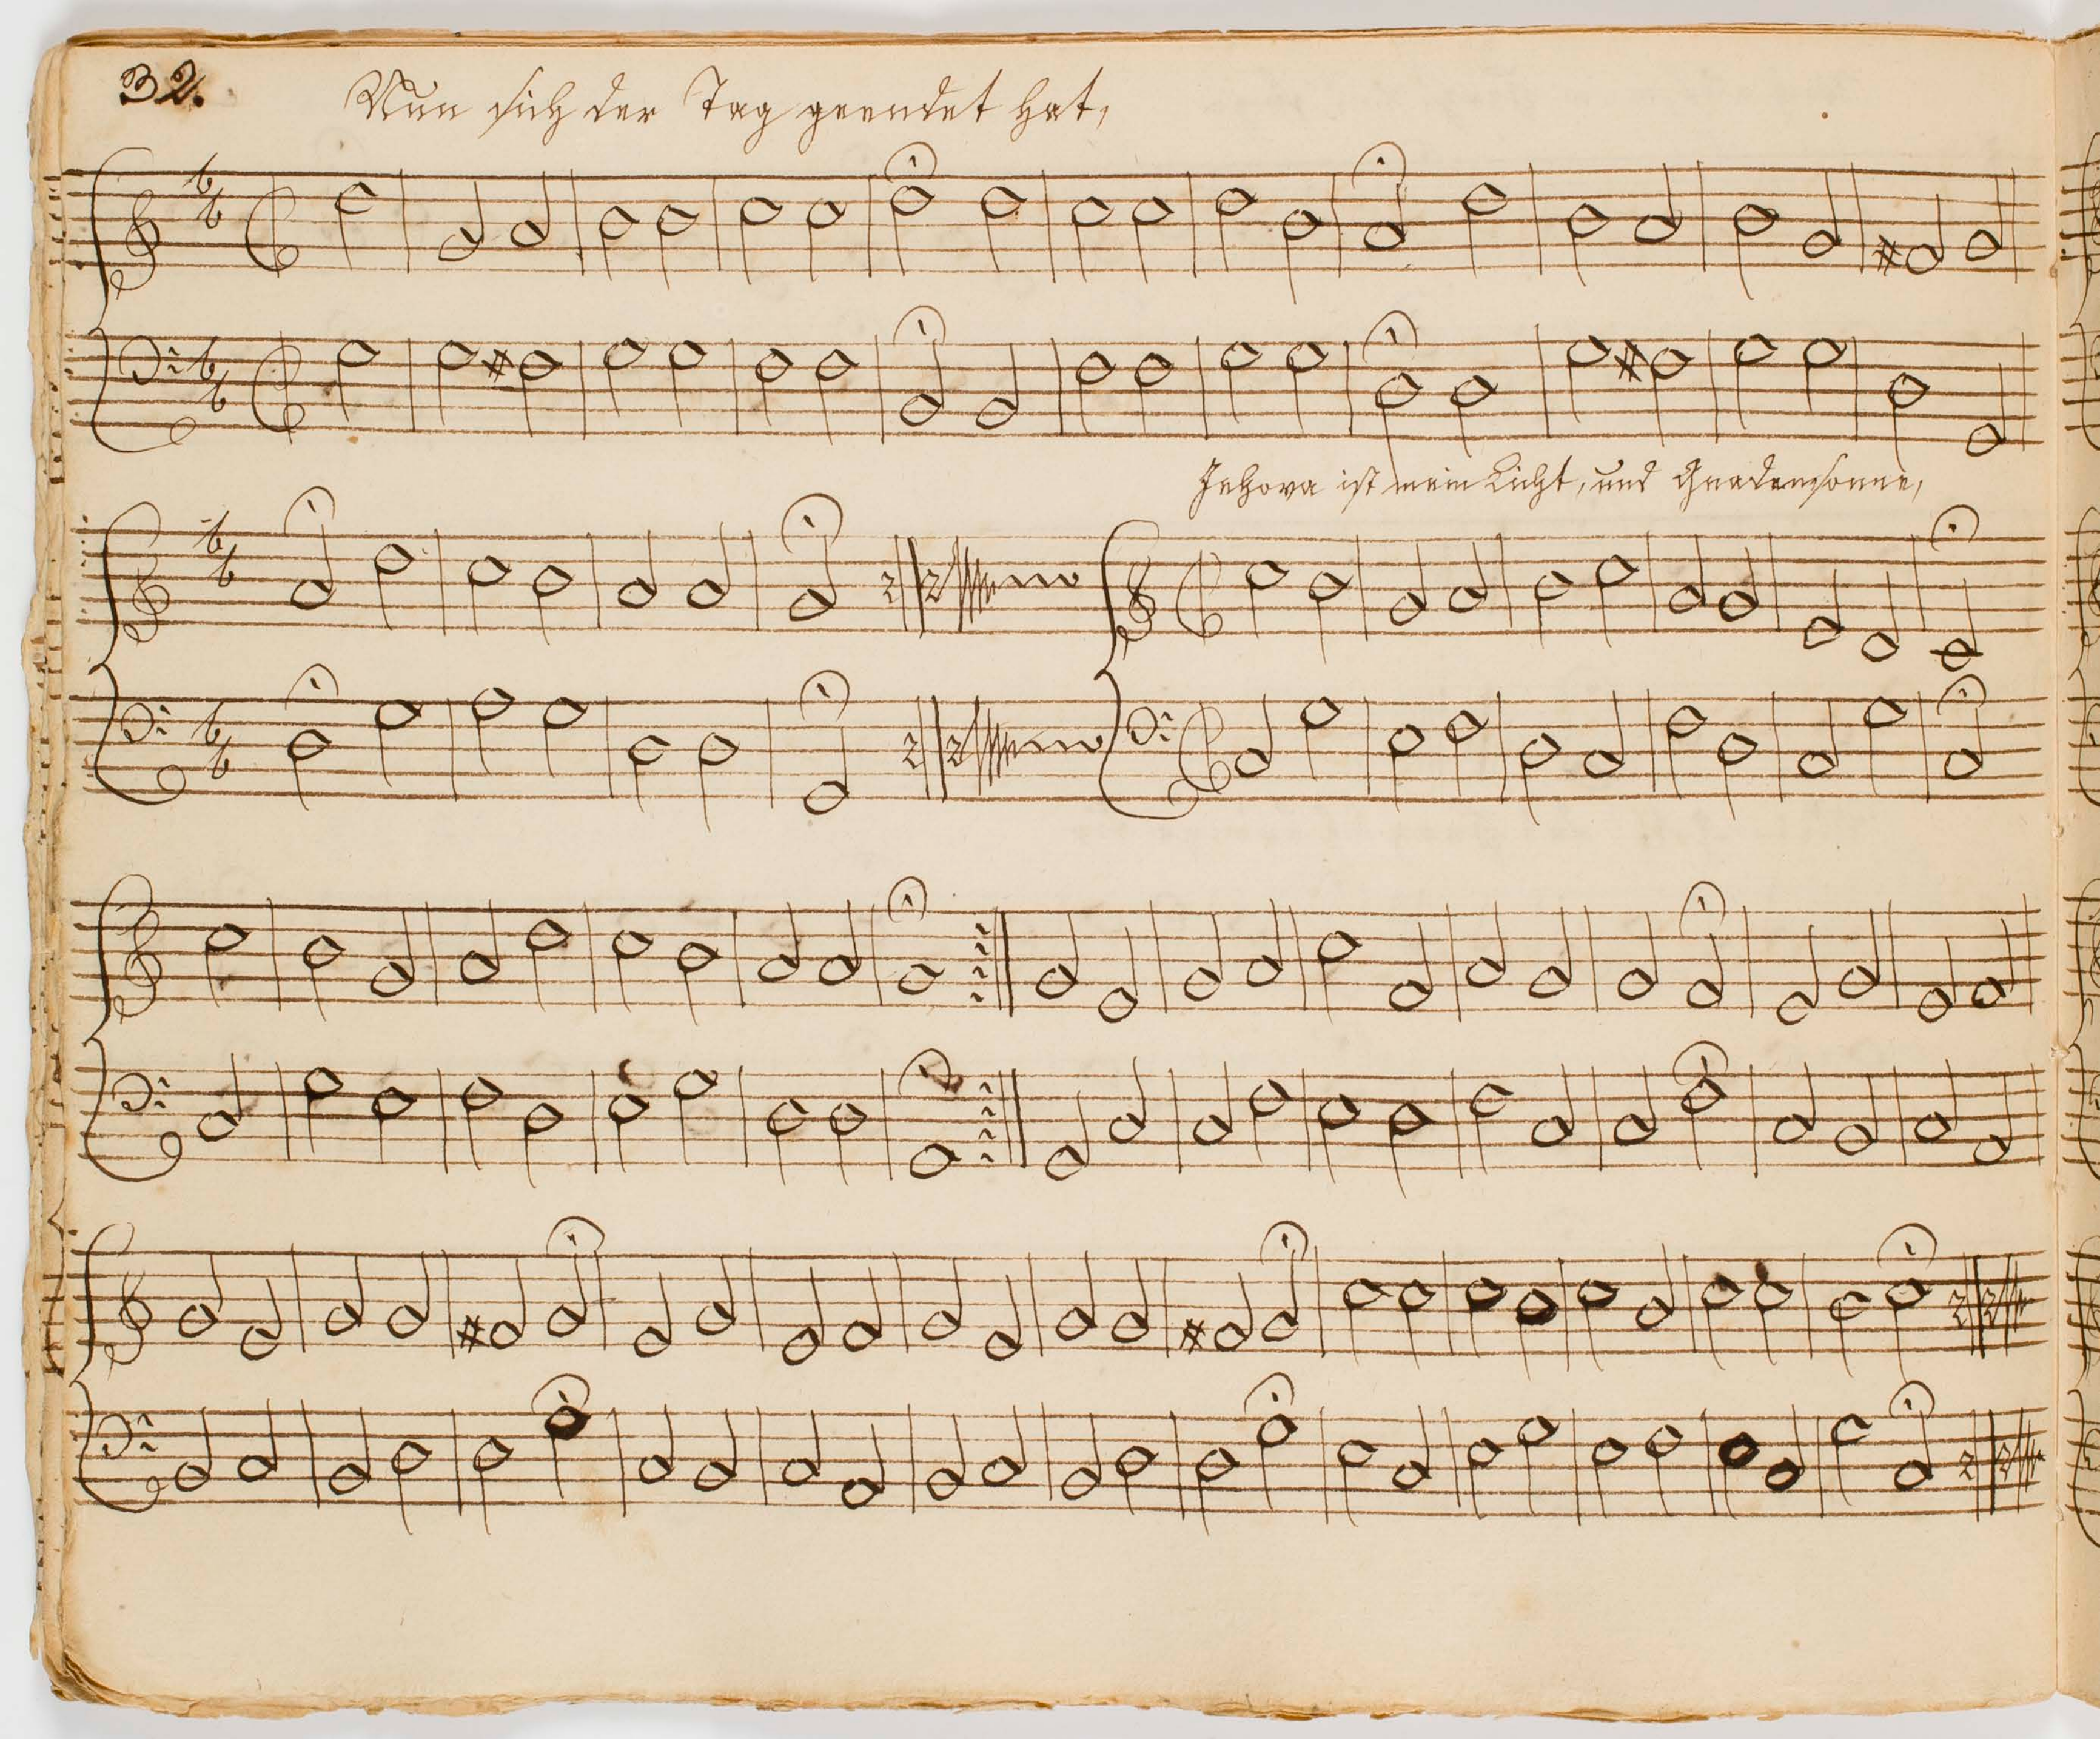 32.
Nun sich der Tag geendet hat,
Jehova ist mein Licht, und Gnadensonne,